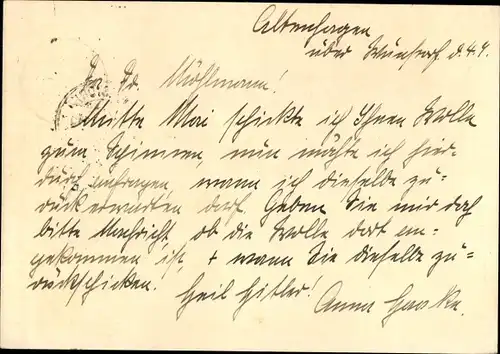 Altenhagen
über Wunstorf d. 4. 4.
Fr. Möhlmann!
Mitte Mai schickte ich Ihnen Wolle
zum Spinnen, nun möchte ich hier-
durch anfragen, wann ich dieselbe zu-
rückerwarten darf. Geben Sie mir doch
bitte Nachricht, ob die Wolle dort an-
gekommen ist, + wann Sie dieselbe zu-
rückschicken. Heil Hitler!
Anna